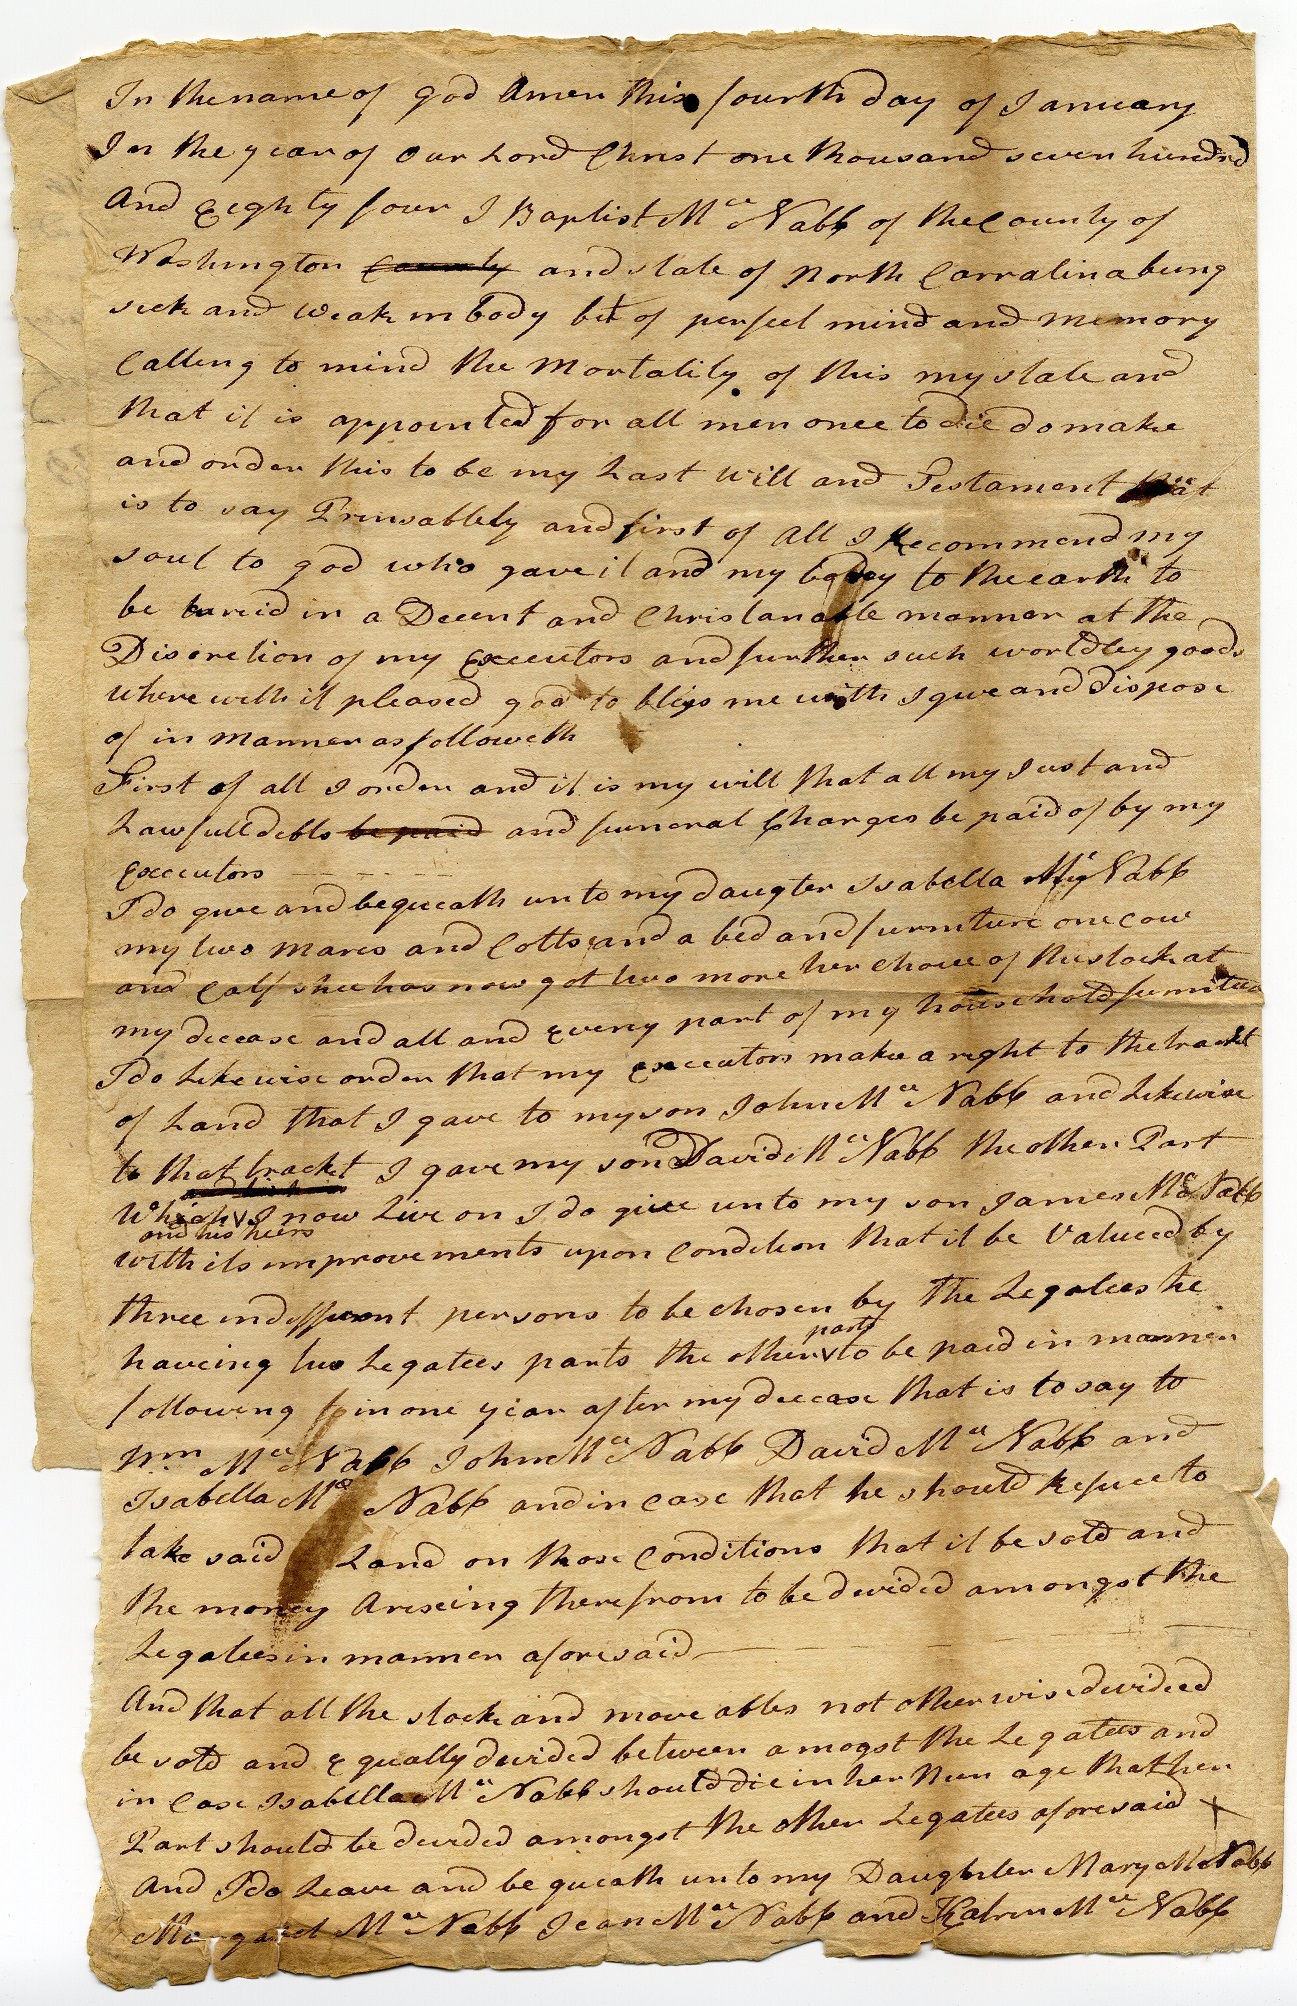 In the name of god Amen this fourth day of January
In the year of our Lord Christ one thousand seven hundred
And Eeighty four I Baptist Mcc Nabb of the County of
Washington County and state of North Carralina being
seek and weak in body but of perfect mind and memory
Calleng to mind the Mortality of this my state and
that it is appointed for all men once to die do make
and order this to be my Last Will and Testament that
is to say Prinsablely and first of all I Recommend my
soul to god who gave it and my bodey to the earth to
be bureid in a Decent and Christanable manner at the
Discretion of my Executors and further such worldley goods
where with it pleased god to bliss me with I give and dispose
of in manner as followeth
First of all I order and it is my will that all my Just and
Lawfull debts be paid and funeral Charges be paid of by my
Executors
I do give and bequeath unto my daugter Isabella Mc Nabb
my two mares and Colts and a bed and furniture one cow
and Calf shee has now got two more her choice of the stock at
my decease and all and Every part of my household furniture
I do Likewise order that my Executors make a right to the tract
of Land that I gave to my son John Mcc Nabb and Likewise
to that tracket I gave my son David Mcc Nabb the other Part
Which I now Live on I do give unto my son James Mc Nabb
and his heirs
with its improvements upon Condition that it be Valueed by
three indifferent persons to be chosen by the Legatees he
haveing two Legatees parts the other parts to be paid in manner
following in one year after my decease that is to say to
Wm Mcc Nabb John Mcc Nabb David Mcc Nabb and
Isabella Mcc Nabb and in Case that he should Refuce to
take said Land on those Conditions that it be sold and
the money Areseing therefrom to be devided amongst the
Legatees in manner aforesaid
And that all the stock and moveables not otherwise devideed
be sold and Equally devided between amogst the Legatees and
in Case Isabella Mcc Nabb should die in her Nun age that her
Part should be devided amongst the other Legatees aforesaid
And I do Leave and bequeath unto my Daughter Mary Mc Nabb
Margaret Mcc Nabb Jean Mcc Nabb and Katren Mcc Nabb